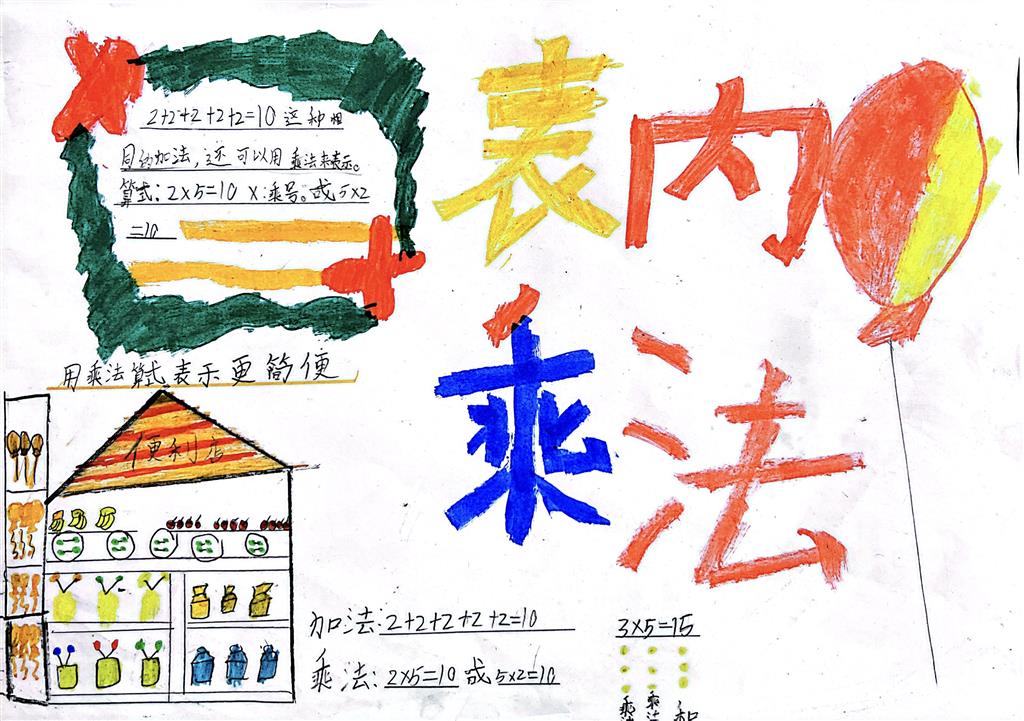 表内
乘法
2+2+2+2+2=10 这种相
同的加法,还可以用乘法来表示。
算式:2×5=10 ×:乘号。或5×2
=10
用乘法算式表示更简便
便利店
加法:2+2+2+2+2=10
乘法:2×5=10 或 5×2=10
3×5=15